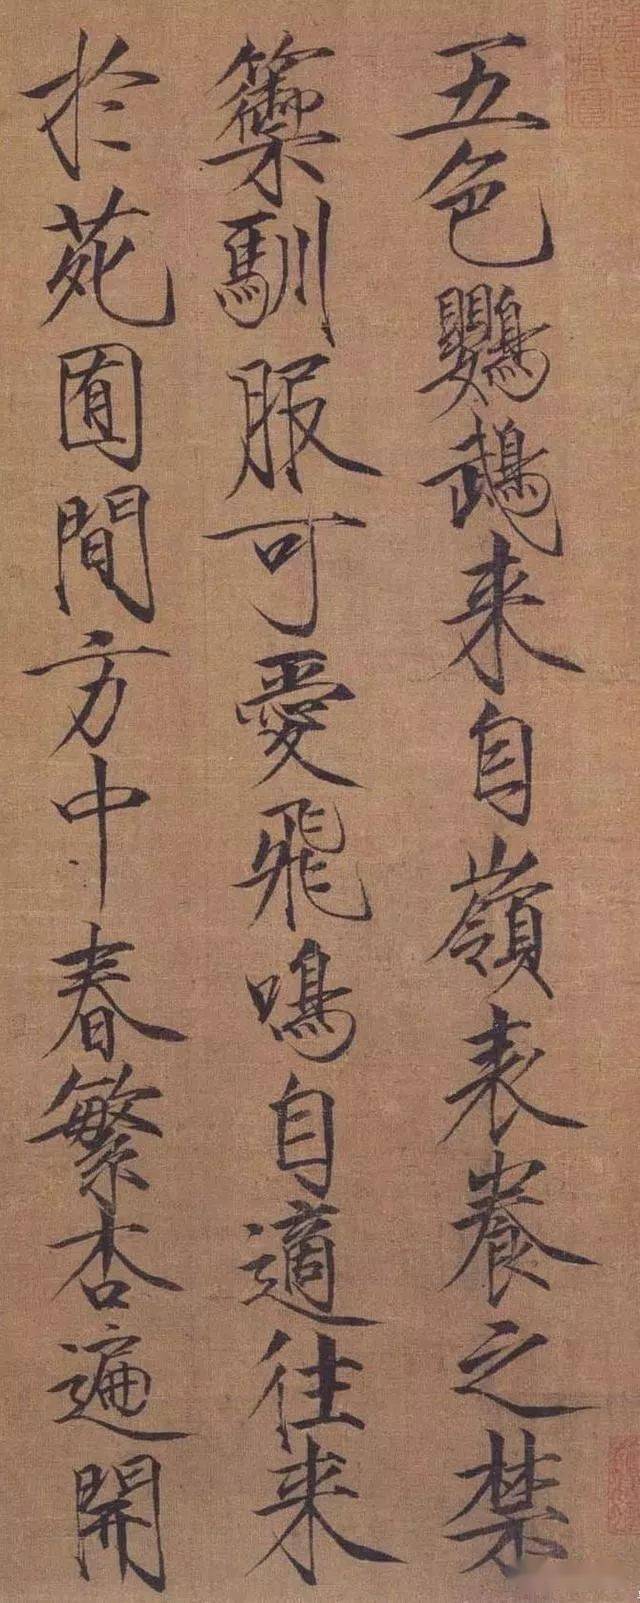 五色鸚鵡来自嶺表養之禁
籞馴服可愛飛鳴自適往来
於苑囿間方中春繁杏遍開